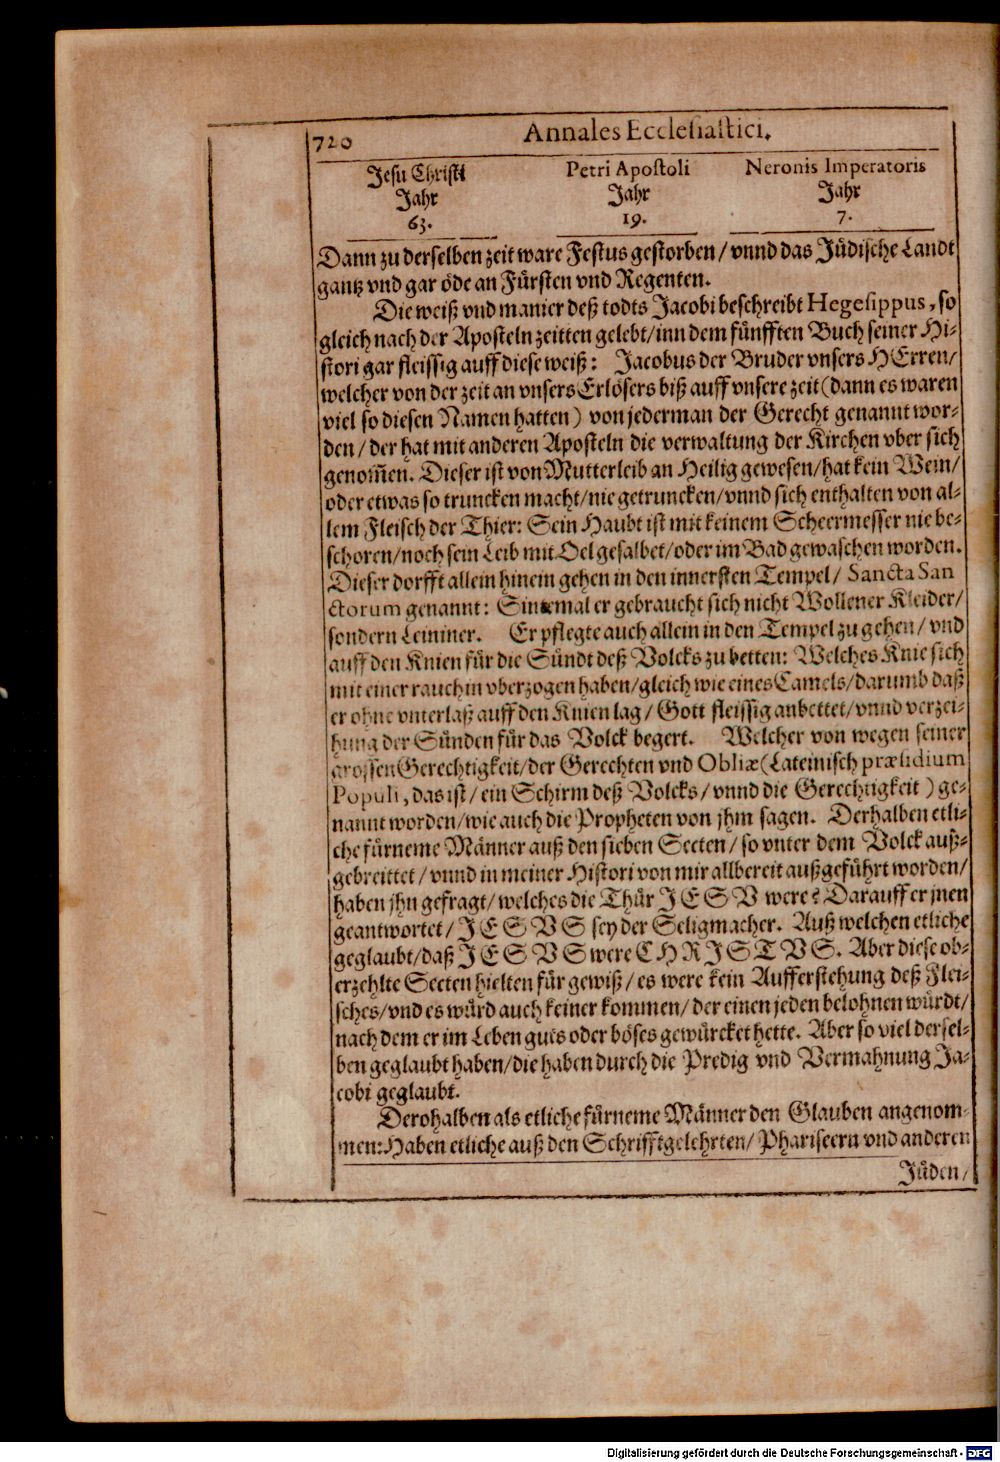 720 Annales Ecclesiastici.
Jesu Christi Petri Apostoli Neronis Imperatoris
Jahr Jahr Jahr
63. 19. 7.
Dann zu derselben zeit ware Festus gestorben / vnnd das Jüdische Landt
gantz vnd gar öde an Fürsten vnd Regenten.
Die weiß vnd manier deß todts Jacobi beschreibt Hegesippus, so
gleich nach der Aposteln zeitten gelebt / inn dem fünfften Buch seiner Hi-
stori gar fleissig auff diese weiß: Jacobus der Bruder vnsers HErren /
welcher von der zeit an vnsers Erlösers biß auff vnsere zeit (dann es waren
viel so diesen Namen hatten) von jederman der Gerecht genannt wor-
den / der hat mit anderen Aposteln die verwaltung der Kirchen vber sich
genom̃en. Dieser ist von Mutterleib an Heilig gewesen / hat kein Wein /
oder etwas so truncken macht / nie getruncken / vnnd sich enthalten von al-
lem Fleisch der Thier: Sein Haubt ist mit keinem Scheermesser nie be-
schoren / noch sein Leib mit Oel gesalbet / oder im Bad gewaschen worden.
Dieser dorfft allein hinein gehen in den innersten Tempel / Sancta San
ctorum genannt: Sintemal er gebraucht sich nicht Wollener Kleider /
sondern Leininer. Er pflegte auch allein in den Tempel zu gehen / vnd
auff den Knien für die Sündt deß Volcks zu betten: Welches Knie sich
mit einer rauchin vberzogen haben / gleich wie eines Camels / darumb daß
er ohne vnterlaß auff den Knien lag / Gott fleissig anbettet / vnnd verzei-
hung der Sünden für das Volck begert. Welcher von wegen seiner
grossen Gerechtigkeit / der Gerechten vnd Obliæ (Lateinisch præsidium
Populi, das ist / ein Schirm deß Volcks / vnnd die Gerechtigkeit) ge-
nannt worden / wie auch die Propheten von jhm sagen. Derhalben etli-
che fürneme Männer auß den sieben Secten / so vnter dem Volck auß-
gebreittet / vnnd in meiner Histori von mir allbereit außgeführt worden /
haben jhn gefragt / welches die Thür JESV were? Darauff er jnen
geantwortet / JESVS sey der Seligmacher. Auß welchen etliche
geglaubt / daß JESVS were CHRISTVS. Aber diese ob-
erzehlte Secten hielten für gewiß / es were kein Aufferstehung deß Flei-
sches / vnd es würd auch keiner kommen / der einen jeden belohnen würdt /
nach dem er im Leben guts oder böses gewürcket hette. Aber so viel dersel-
ben geglaubt haben / die haben durch die Predig vnd Vermahnung Ja-
cobi geglaubt.
Derohalben als etliche fürneme Männer den Glauben angenom-
men: Haben etliche auß den Schrifftgelehrten / Phariseern vnd anderen
Jüden /
Digitalisierung gefördert durch die Deutsche Forschungsgemeinschaft - DFG